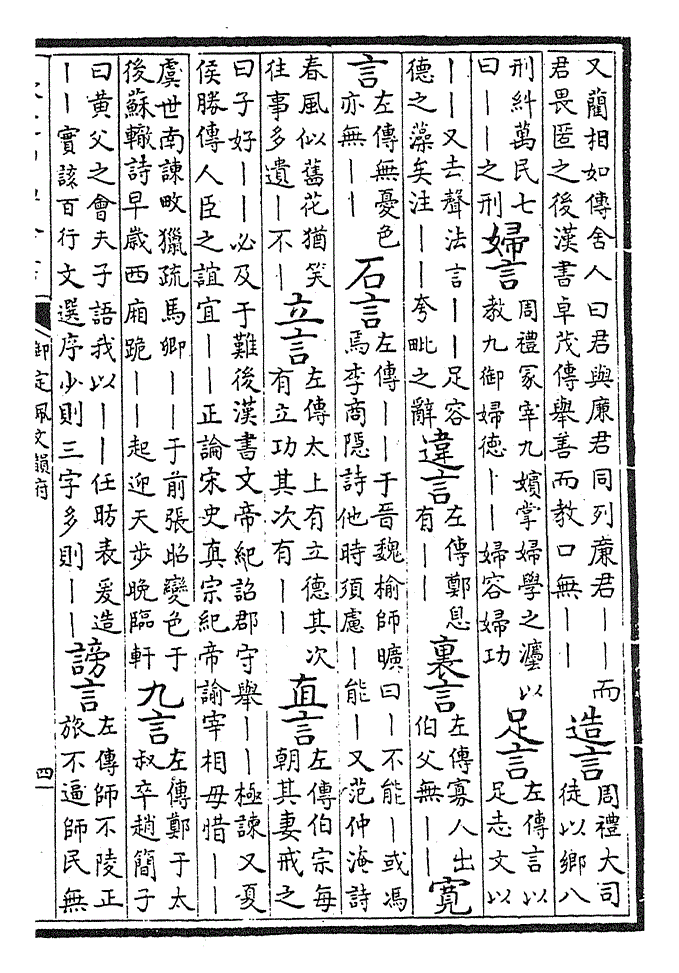 又藺相如傳舍人曰君與廉君同列廉君｜｜而
君畏匿之後漢書卓茂傳舉善而教口無｜｜
造言
周禮大司
徒以鄉八
刑糾萬民七
曰｜｜之刑
婦言
周禮冢宰九嬪掌婦學之灋以
教九御婦德｜｜婦容婦功
足言
左傳言以
足志文以
｜｜又去聲法言｜｜足容
德之藻矣注｜｜夸毗之辭
違言
左傳鄭息
有｜｜
裏言
左傳寡人出
伯父無｜｜
寬
言
左傳無憂色
亦無｜｜
石言
左傳｜｜于晉魏榆師曠曰｜不能｜或馮
焉李商隱詩他時須慮｜能｜又范仲淹詩
春風似舊花猶笑
往事多遺｜不｜
立言
左傳太上有立德其次
有立功其次有｜｜
直言
左傳伯宗每
朝其妻戒之
曰子好｜｜必及于難後漢書文帝紀詔郡守舉｜｜極諫又夏
侯勝傳人臣之誼宜｜｜正論宋史真宗紀帝諭宰相毋惜｜｜
虞世南諫畋獵疏馬卿｜｜于前張昭變色于
後蘇轍詩早歲西廂跪｜｜起迎天步晚臨軒
九言
左傳鄭于太
叔卒趙簡子
曰黃父之會夫子語我以｜｜任昉表爰造
｜｜實該百行文選序少則三字多則｜｜
謗言
左傳師不陵正
旅不逼師民無
御定佩文韻府
四